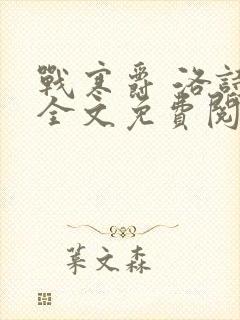 戰寒爵 洛詩
全文免費閱
葉文森